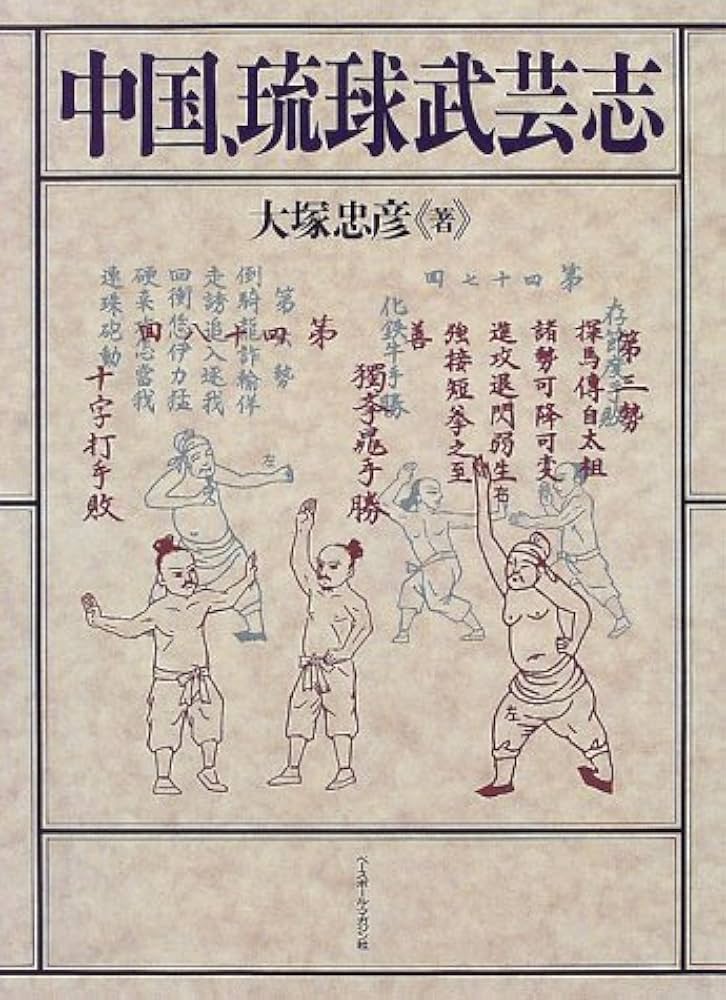 中国、琉球武芸志
大塚忠彦《著》
第四十七四
第三勢
探馬傳自太祖
諸勢可降可変
進攻退閃弱生
強接短拳之至
善
化鉄牛手勝
第四十八四
手勝
倒騎龍詐輸佯
走誘追入遂我
回衝恁伊力猛
連珠砲動
十字打手敗
左
右
左
ベースボール・マガジン社